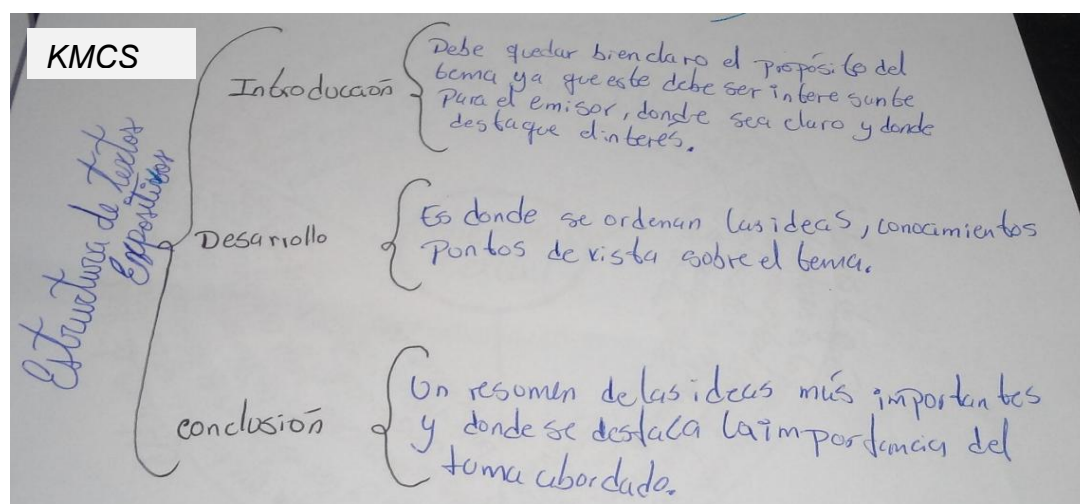 KMCS
Estructura de textos
Expositivos
Introducción
Debe quedar bien claro el propósito del
tema ya que este debe ser interesante
para el emisor, donde sea claro y donde
destaque el interés.
Desarrollo
Es donde se ordenan las ideas, conocimientos
Puntos de vista sobre el tema.
Conclusión
Un resumen de las ideas más importantes
y donde se destaca la importancia del
tema abordado.